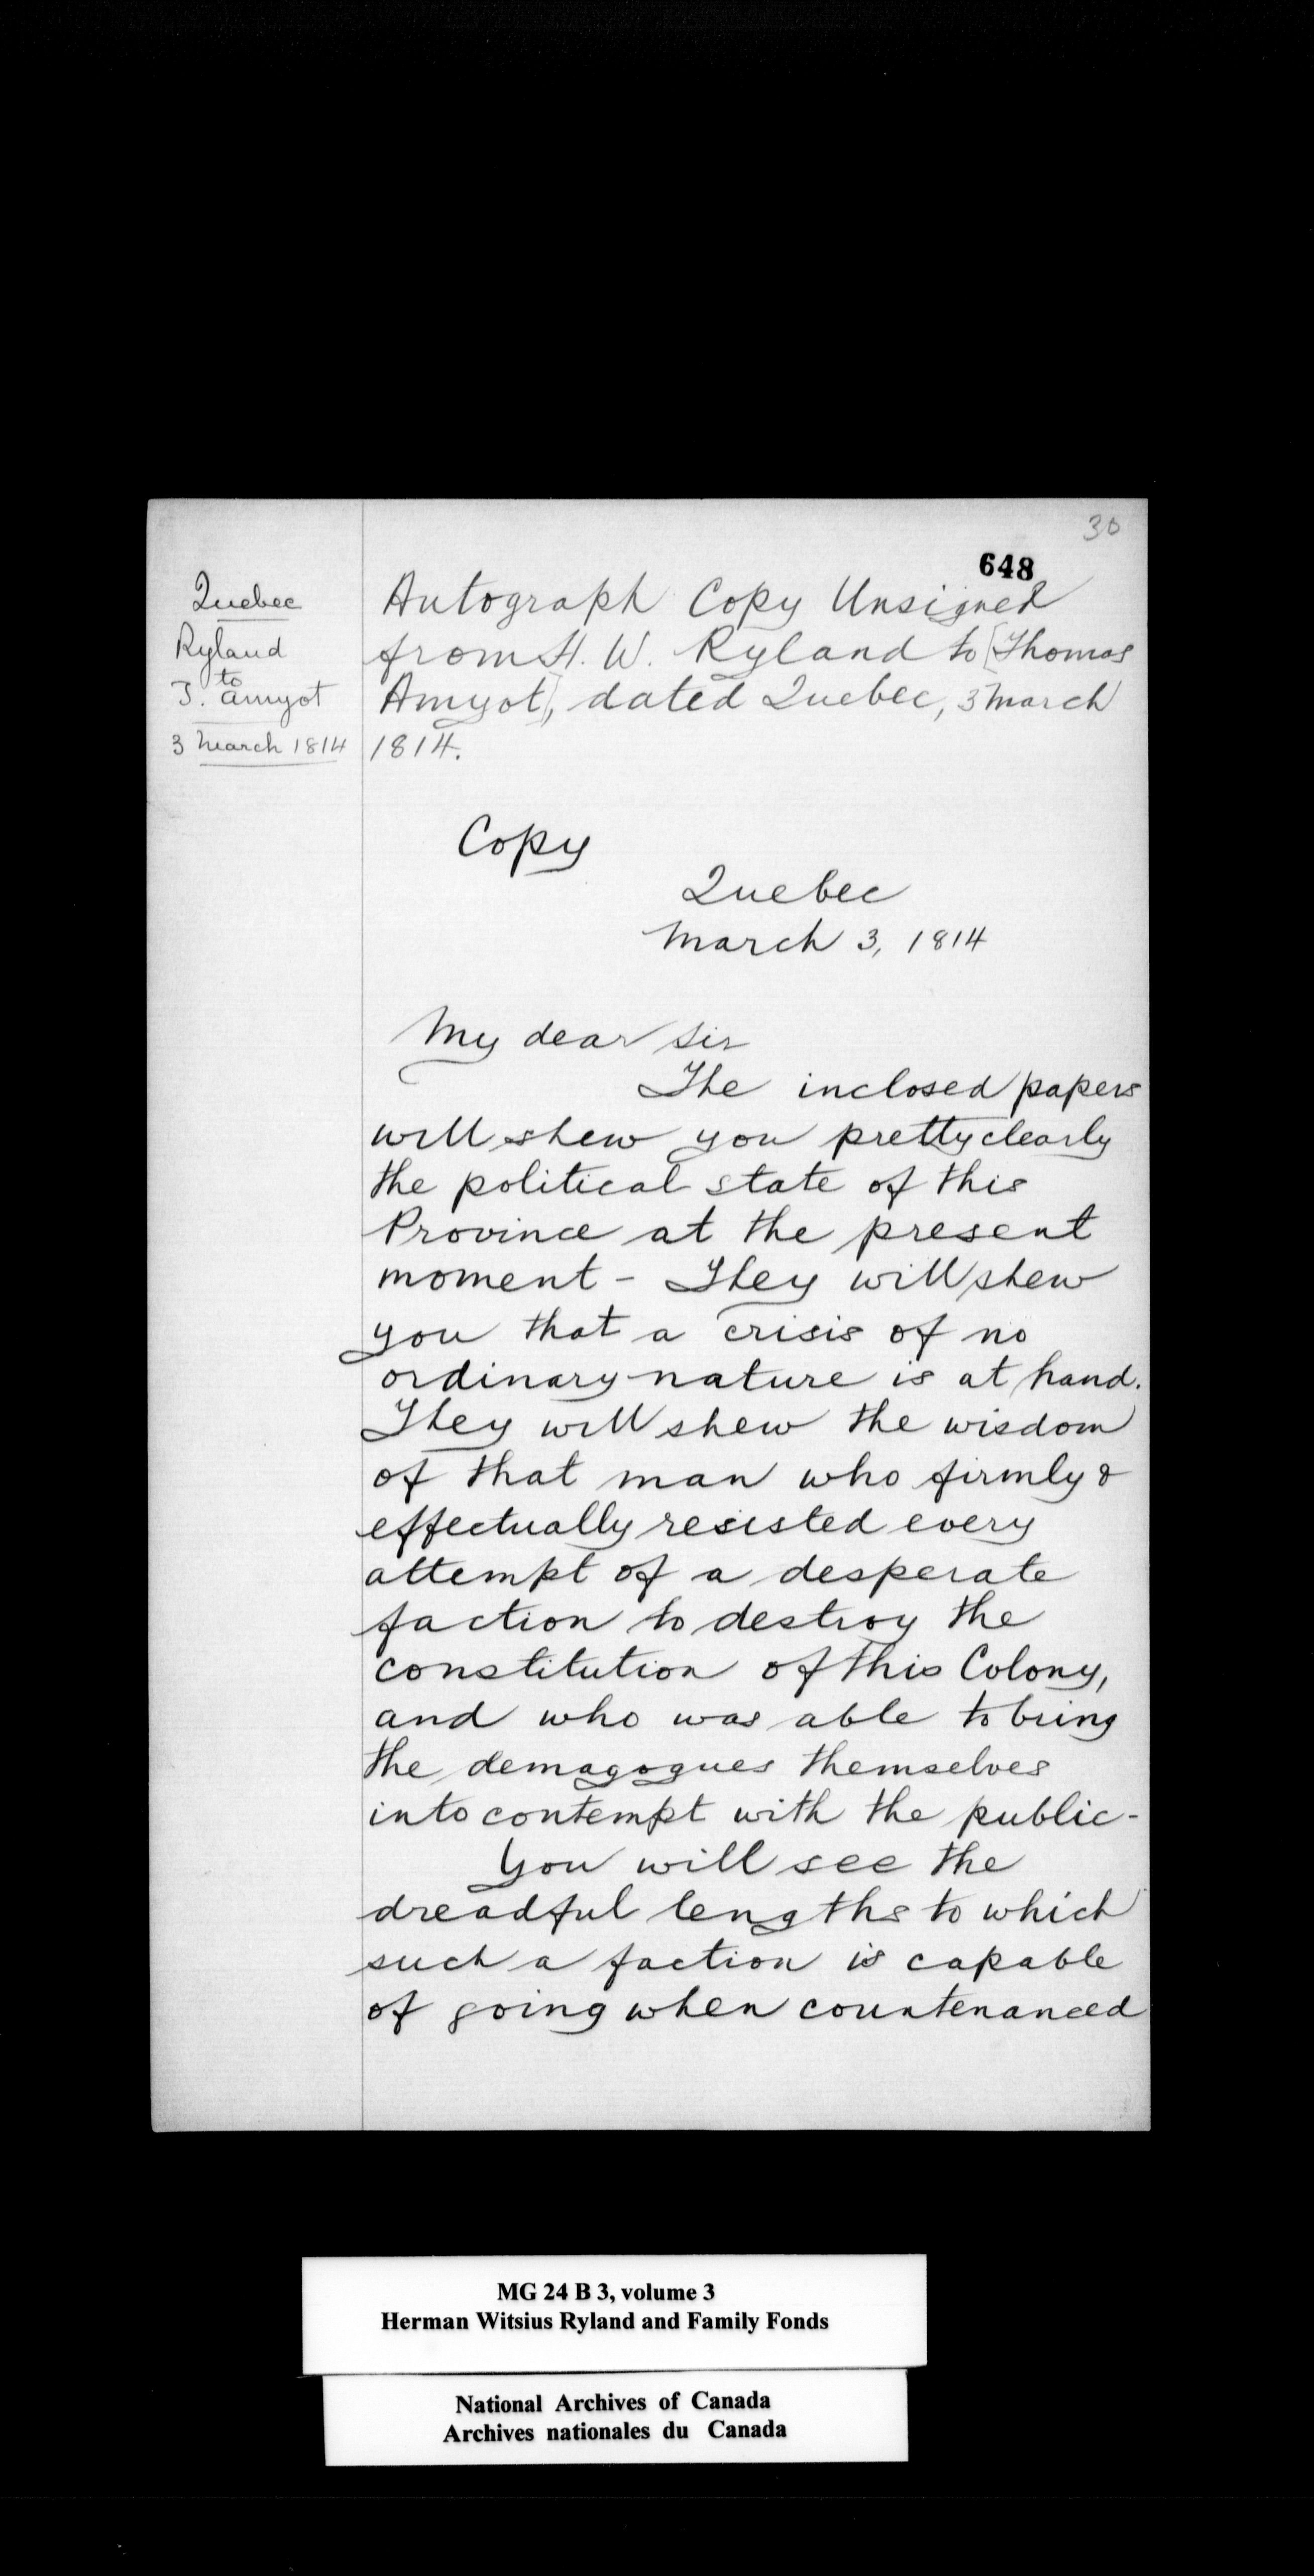 30
648
Quebec
Ryland
to
T. Amyot
3 March 1814
Autograph Copy Unsigned
from H. W. Ryland to [Thomas
Amyot], dated Quebec, 3 March
1814.
Copy
Quebec
March 3, 1814
My dear Sir
The inclosed papers
will shew you pretty clearly
the political state of this
Province at the present
moment - They will shew
you that a crisis of no
ordinary nature is at hand.
They will shew the wisdom
of that man who firmly &
effectually resisted every
attempt of a desperate
faction to destroy the
constitution of this Colony,
and who was able to bring
the demagogues themselves
into contempt with the public -
You will see the
dreadful lengths to which
such a faction is capable
of going when countenanced
MG 24 B 3, volume 3
Herman Witsius Ryland and Family Fonds
National Archives of Canada
Archives nationales du Canada